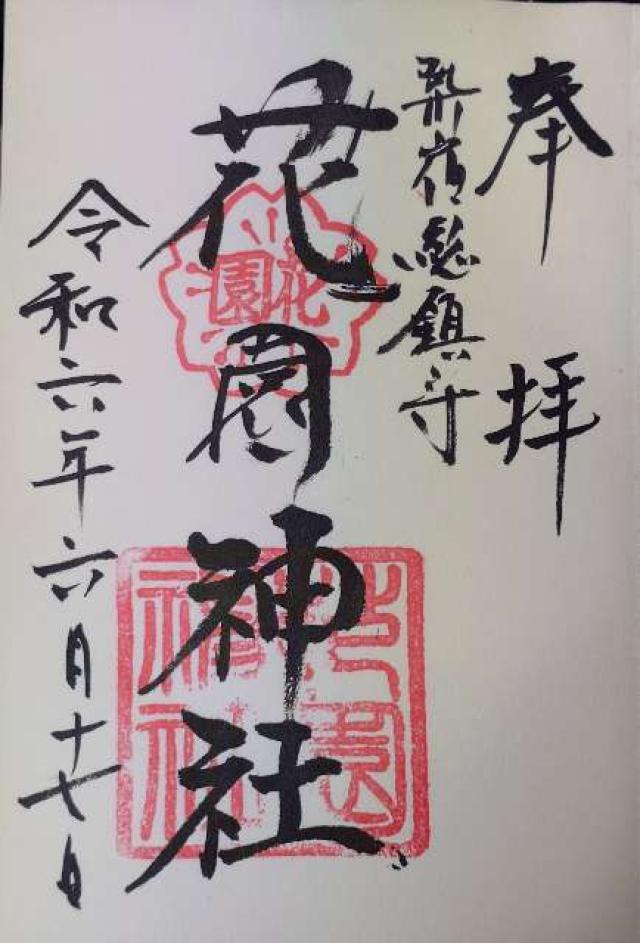 奉拝
新宿総鎮守
花園神社
花園
花園神社
令和六年六月十七日